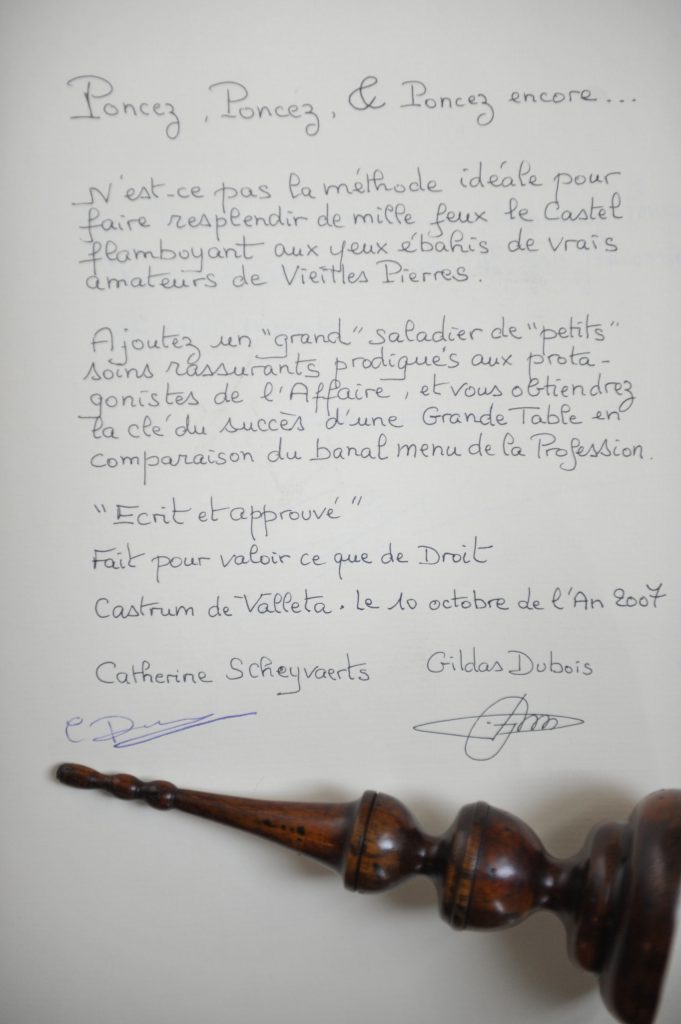 Poncez, Poncez, & Poncez encore...
N'est-ce pas la méthode idéale pour
faire resplendir de mille feux le Castel
flamboyant aux yeux ébahis de vrais
amateurs de Vieilles Pierres.
Ajoutez un "grand" saladier de "petits"
soins rassurants prodigués aux prota-
gonistes de l'Affaire, et vous obtiendrez
la clé du succès d'une Grande Table en
comparaison du banal menu de la Profession.
"Ecrit et approuvé"
Fait pour valoir ce que de Droit
Castrum de Valleta. Le 10 octobre de l'An 2007
Catherine Scheyvaerts Gildas Dubois